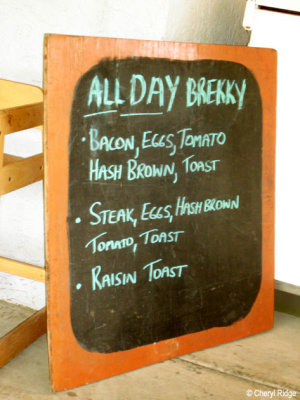 ALL DAY BREKKY
• BACON, EGGS, TOMATO
HASH BROWN, TOAST
• STEAK, EGGS, HASH BROWN
TOMATO, TOAST
• RAISIN TOAST
© Cheryl Ridge